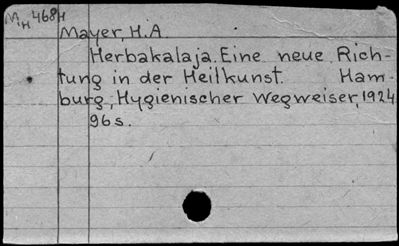 M,H 468H
Mayer, H.A.
Herbakalaja. Eine neue Rich-
tung in der Heilkunst. Ham-
burg, Hygienischer Wegweiser, 1924
96 s.